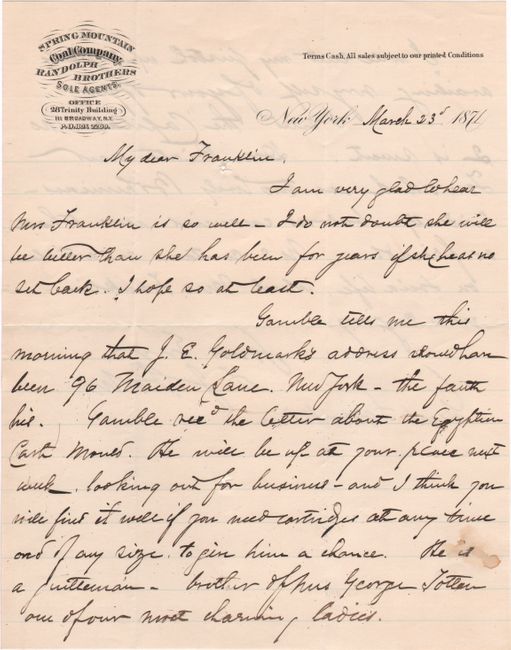 SPRING MOUNTAIN
Coal Company,
RANDOLPH BROTHERS
SOLE AGENTS.
OFFICE
28 Trinity Building
111 BROADWAY, N.Y.
P.O. BOX
Terms Cash. All sales subject to our printed Conditions
New York March 23d 1871
My dear Franklin.
I am very glad to hear
Mrs Franklin is so well – I do not doubt she will
be better than she has been for years if she has no
set back. I hope so at least.
Gamble tells me this
morning that J. E. Goldmarks address should have
been 96 Maiden Lane. New York – the fault
his. Gamble recd the letter about the Egyptian
He will be up at your place next
week, looking out for business – and I think you
will find it well if you need cartridges at any time
and of any size to give him a chance. He is
a gentleman – brother of Mrs George Totten
one of our most charming ladies.